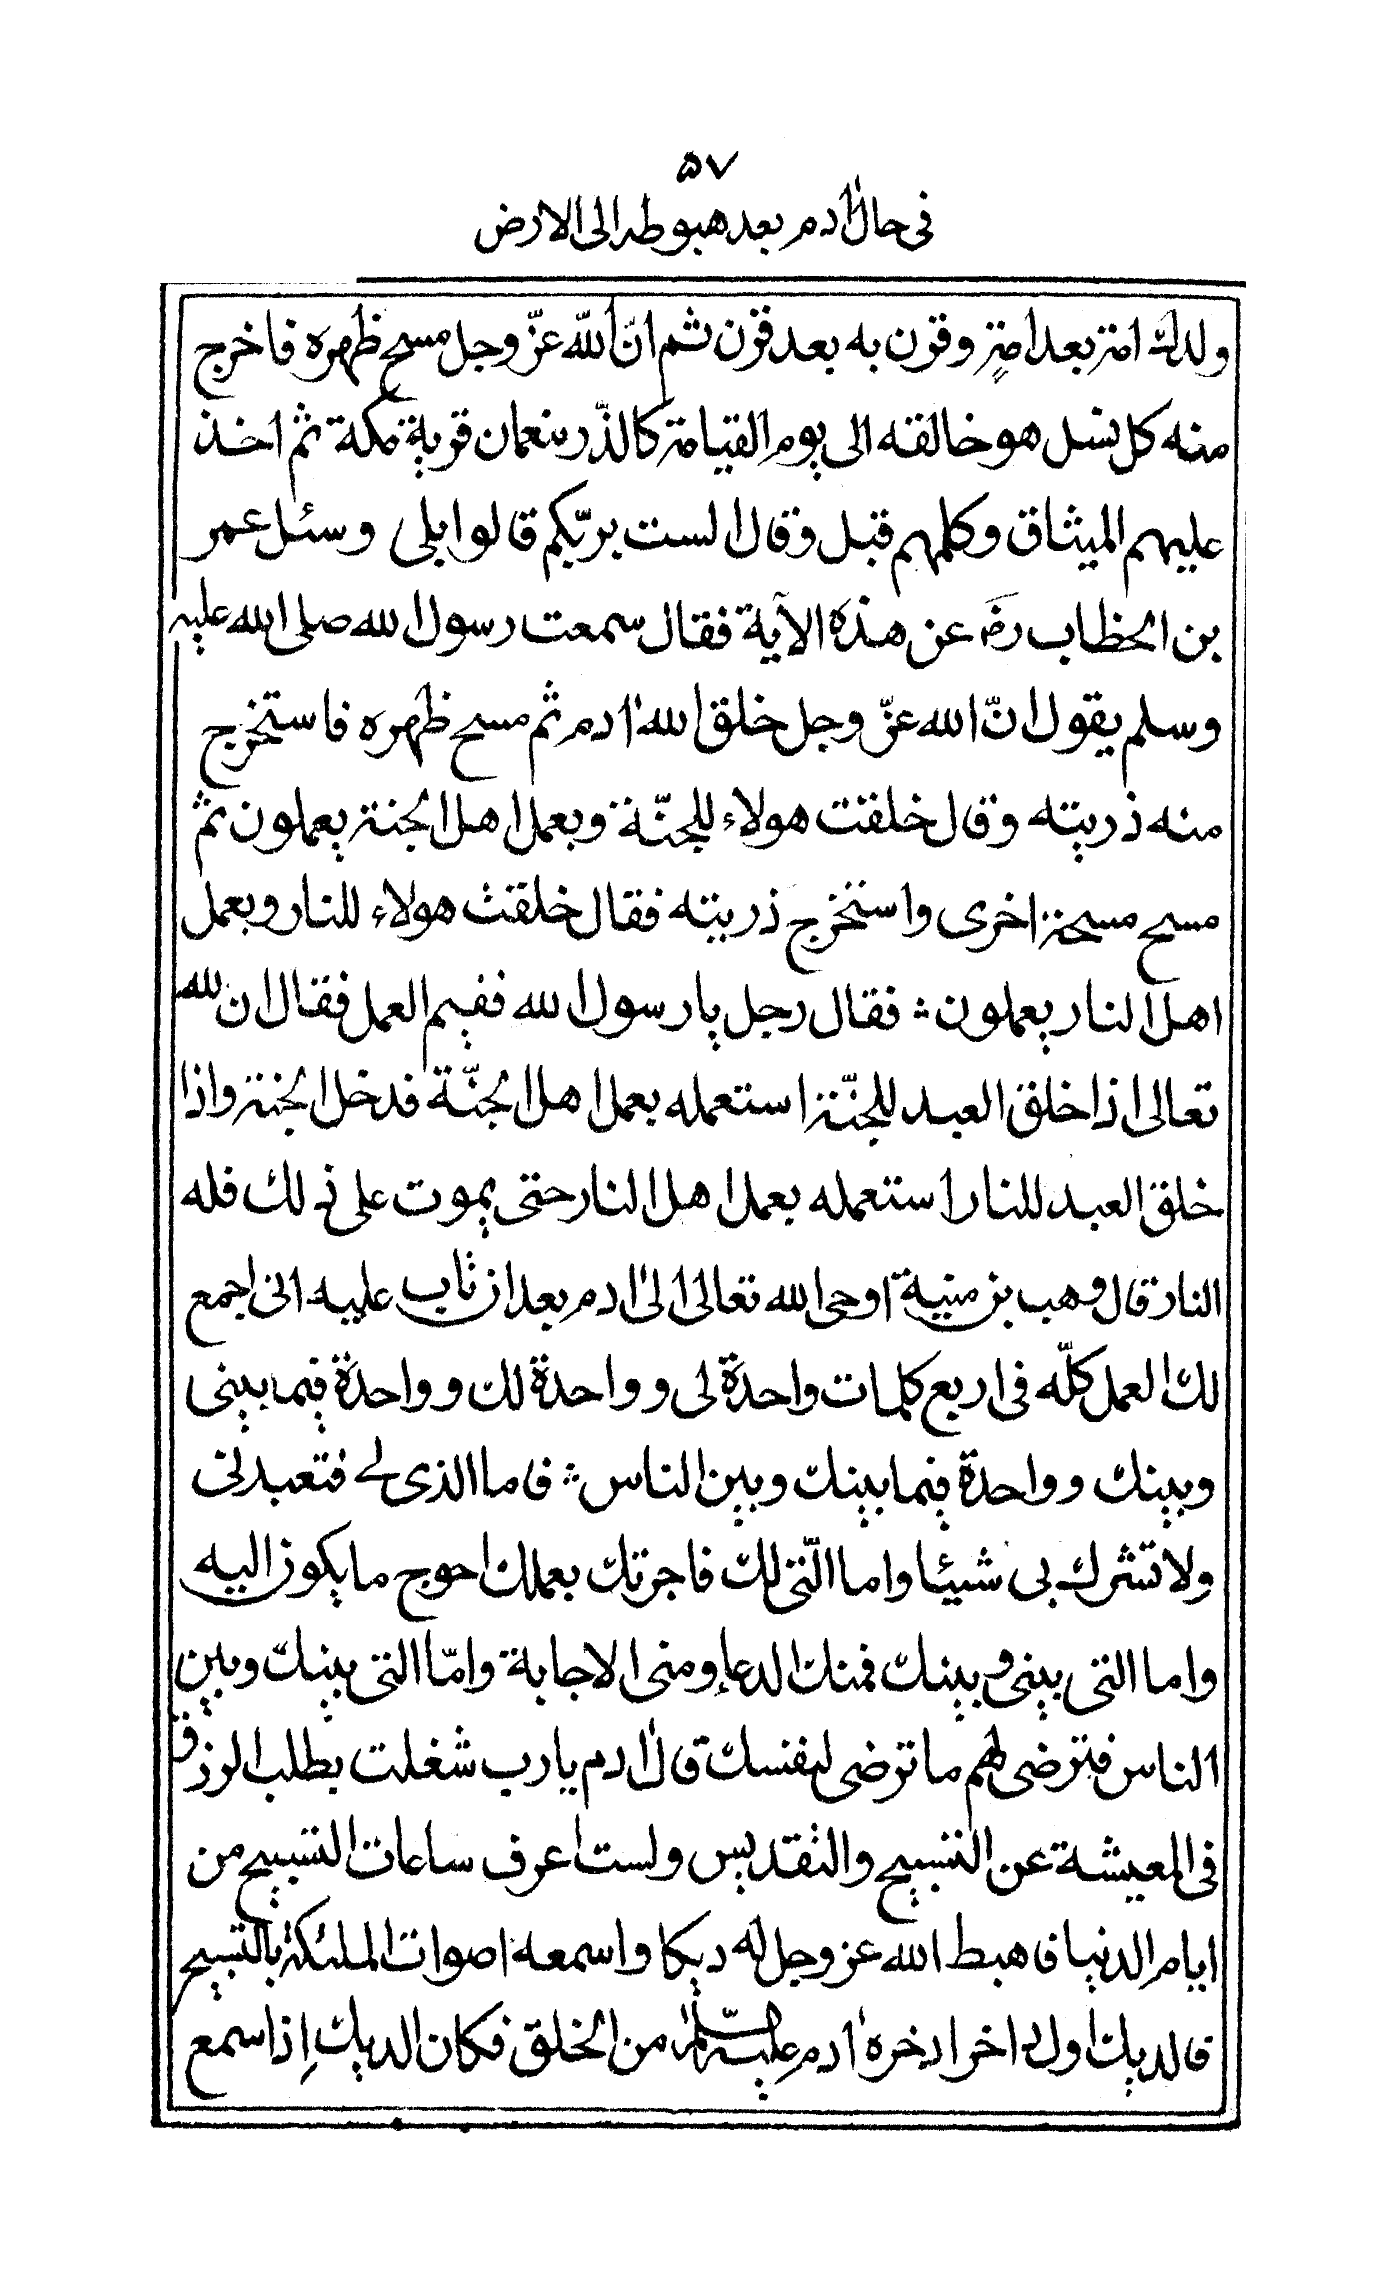 ۵۷
فى حال اٰدم بعد هبوطه الى الارض
ولدك امة بعد امةٍ وقرن به بعد قرن ثم انّ اللّه عزّ وجل مسح ظهره فاخرج
منه كل نسل هو خالقه الى يوم القيامة كالذّر بنعمان قرية مكة ثم اخذ
عليهم الميثاق وكلمهم قبل وقال الست بربّكم قالوا بلى وسئل عمر
بن الخطاب رض عن هذه الآية فقال سمعت رسول الله صلى الله عليه
وسلم يقول انّ الله عزّ وجل خلق الله اٰدم ثم مسح ظهره فاستخرج
منه ذريته وقال خلقت هولاء للجنّة وبعمل اهل الجنة يعملون ثم
مسح مسحة اخرى واستخرج ذريته فقال خلقت هولاء للنار وبعمل
اهل النار يعملون فقال رجل يا رسول الله ففيم العمل فقال ان الله
تعالى اذا خلق العبد للجنّة استعمله بعمل اهل الجنّة فدخل الجنة واذا
خلق العبد للنار استعمله بعمل اهل النار حتى يموت على ذلك فله
النار قال وهب بن منية اوحى الله تعالى الى اٰدم بعد ان تاب عليه انى اجمع
لك العمل كلّه فى اربع كلمات واحدة لى و واحدة لك و واحدة فيما بينى
وبينك و واحدة فيما بينك وبين الناس فاما الذى لى فتعبدنى
ولا تشرك بى شيئا واما الّتى لك فاجرتك بعملك احوج ما يكون اليه
واما التى بينى و بينك فمنك الدعاء ومنى الاجابة وامّا التى بينك وبين
الناس فترضى لهم ما ترضى لنفسك قال اٰدم يا رب شغلت بطلب الرزق
فى المعيشة عن التسبيح والتقديس ولست اعرف ساعات التسبيح من
ايام الدنيا فاهبط الله عز وجل له ديكا واسمعه اصوات الملئكة بالتسبيح
فالديك اول اخر ادخره اٰدم عليه السّلام من الخلق فكان الديك اِذا سمع